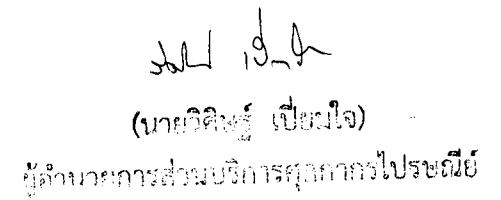 (นายวิศิษฐ์ เปี่ยมใจ)
ผู้อำนวยการส่วนบริการศุลกากรไปรษณีย์